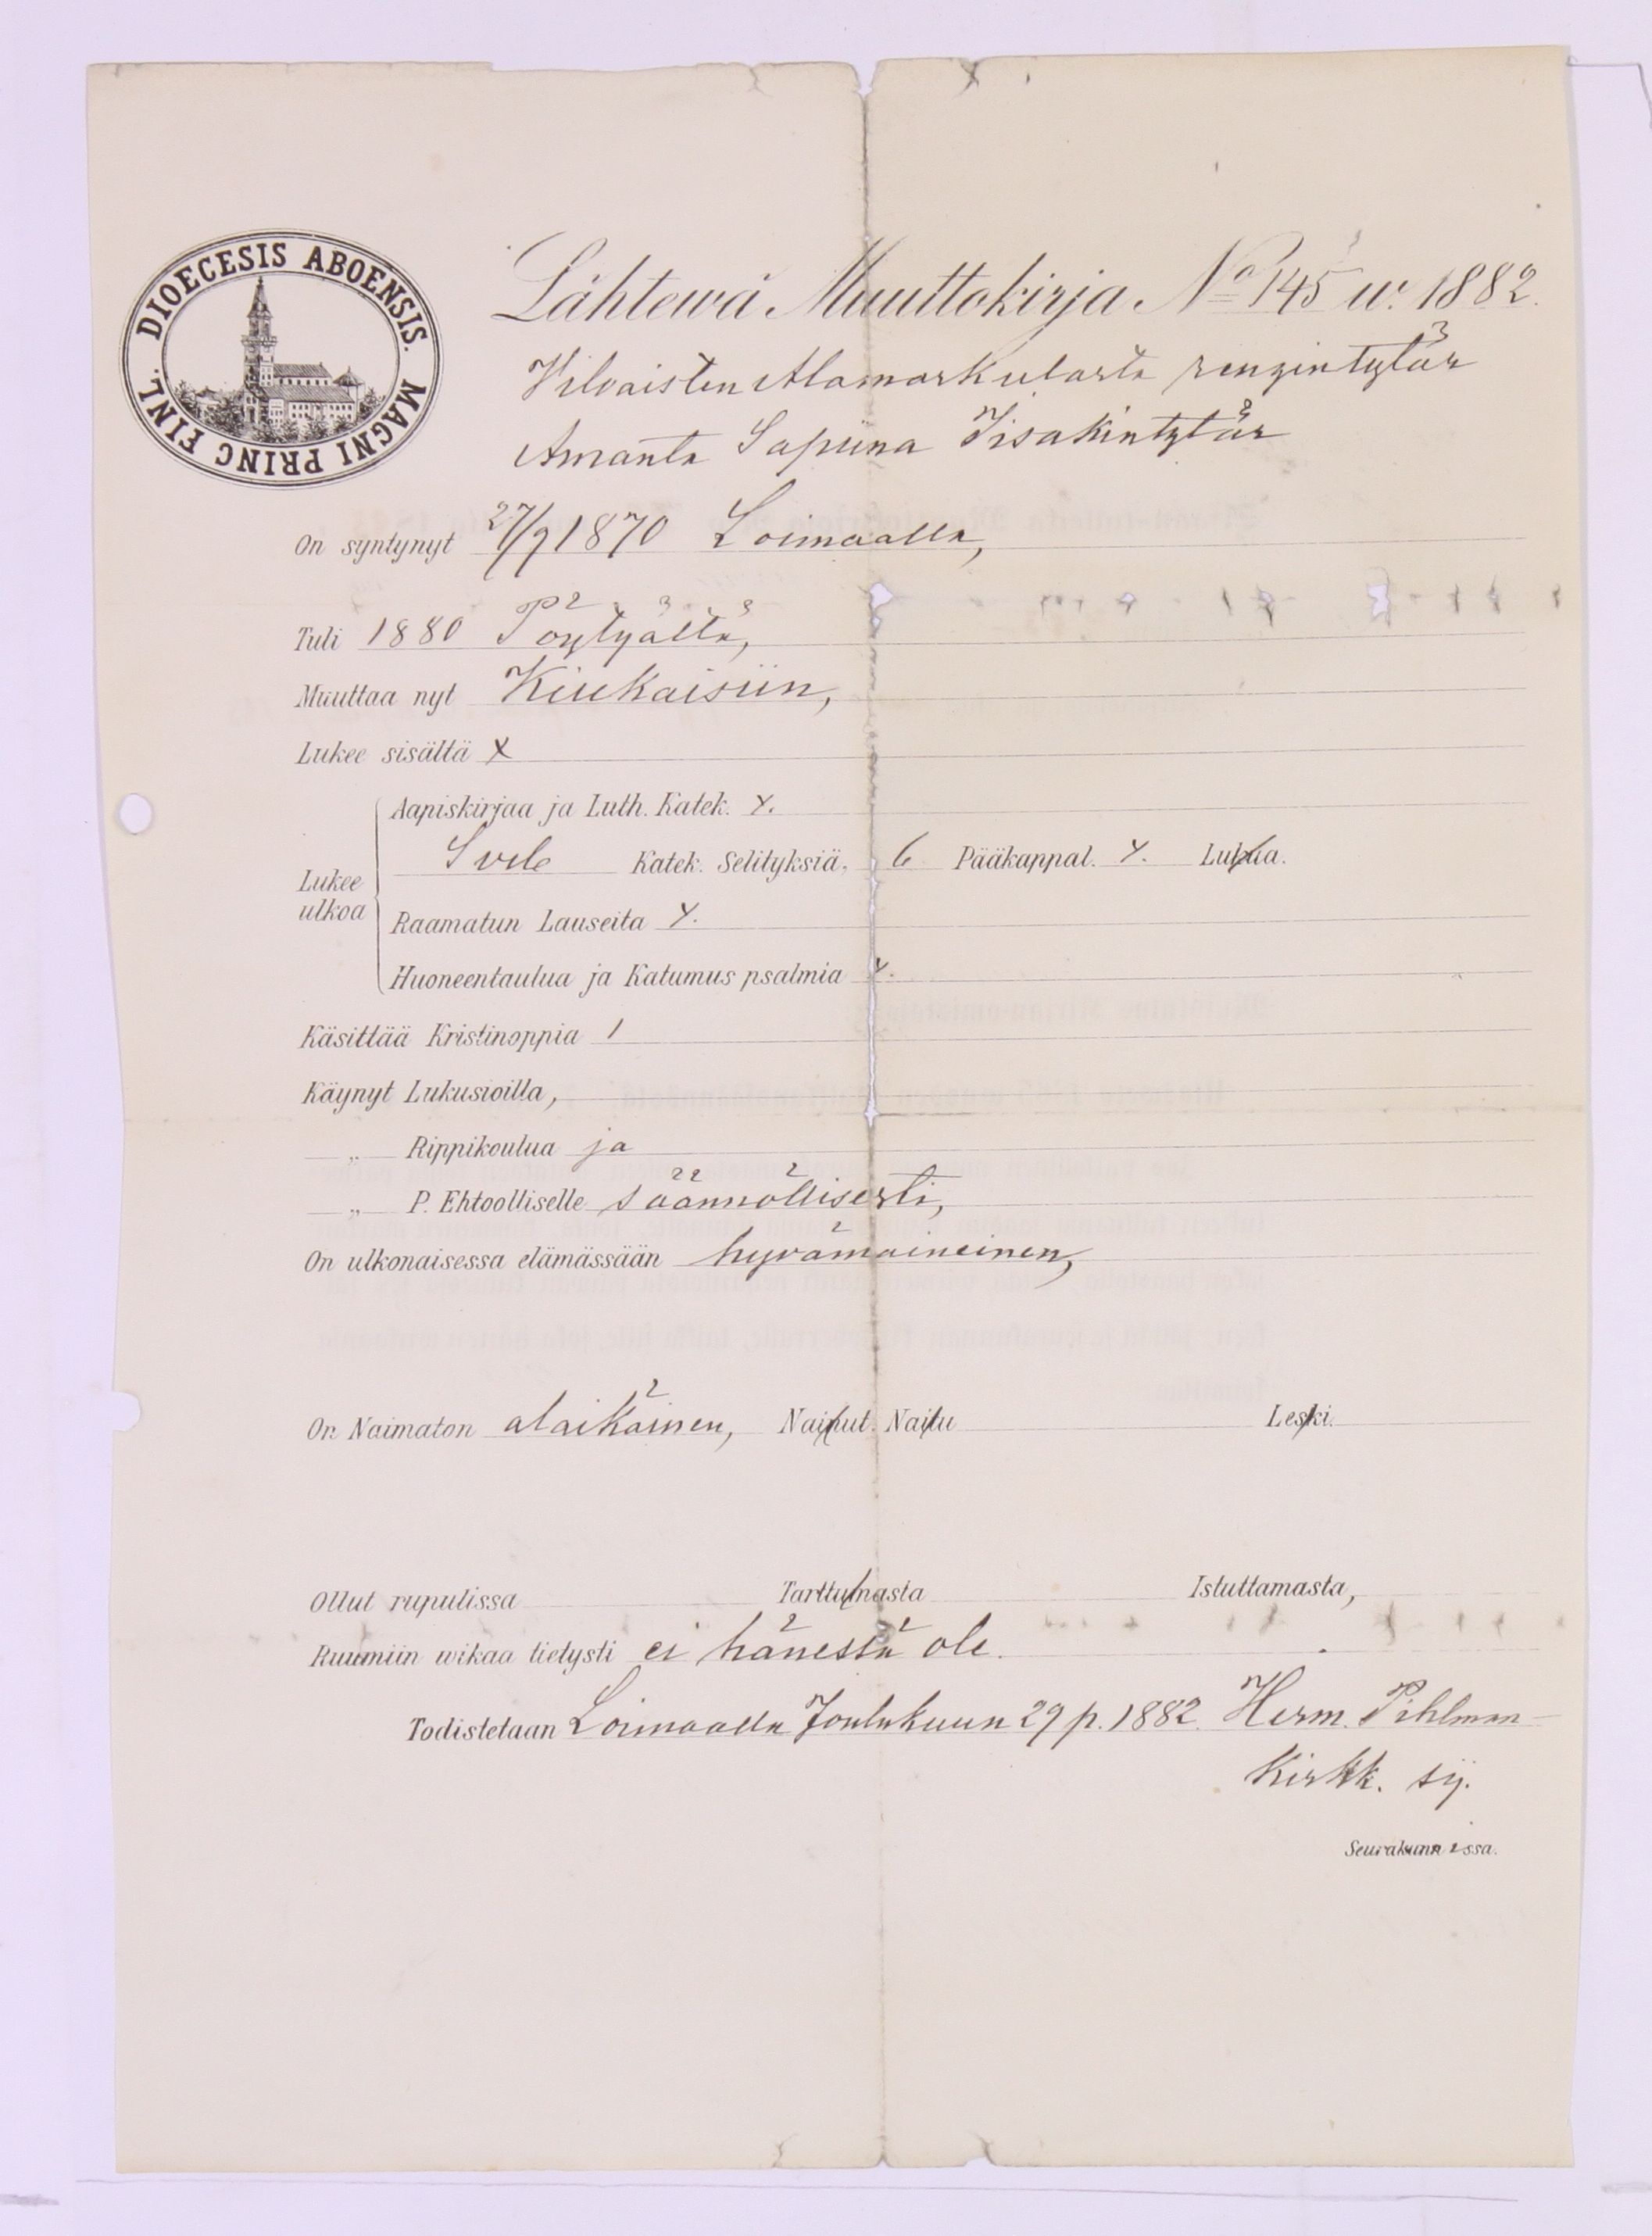 DIOECESIS ABOENSIS. MAGNI PRINC FINL.
Lähtewä Muuttokirja No 145 w. 1882.
Vilvaisten Alamarkulasta rengintytär
Amanta Sapiina Iisakintytär
On syntynyt 27/9 1870 Loimaalla,
Tuli 1880 Pöytyältä,
Muuttaa nyt Kiukaisiin,
Lukee sisältä x
Lukee ulkoa
Aapiskirjaa ja Luth. Katek. x.
Katek. Selityksiä, 6 Pääkappal. x. Lukua.
Raamatun Lauseita x.
Huoneentaulua ja Katumus psalmia x.
Käsittää Kristinoppia 1
Käynyt Lukusioilla,
„ Rippikoulua ja
„ P. Ehtoolliselle säännöllisesti,
On ulkonaisessa elämässään hyvämaineinen,
On Naimaton alaikäinen, Nainut. Naitu Leski.
Ollut rupulissa Tarttumasta Istuttamasta,
Ruumiin wikaa tietysti ei hänessä ole.
Todistetaan Loimaalla Joulukuun 29 p. 1882. Herm. Pihlman
Kirkk. sij.
Seurakunnassa.